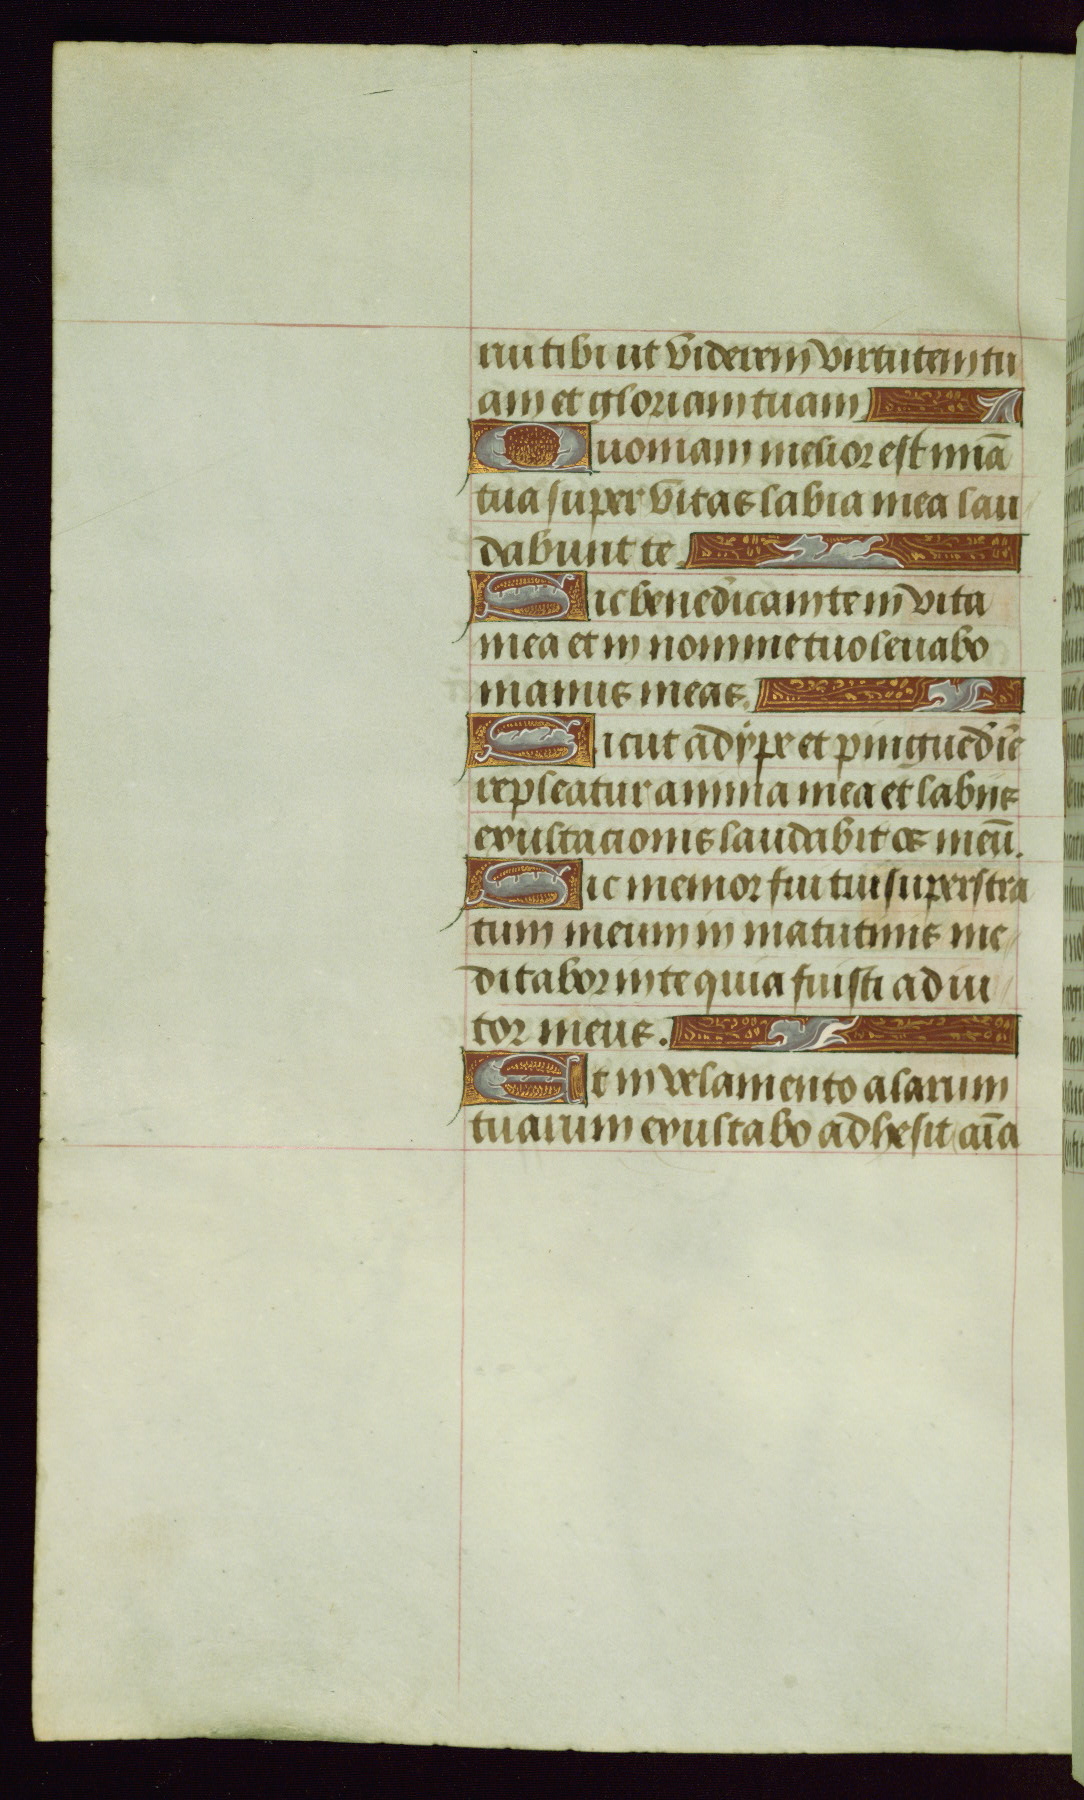 rui tibi ut viderem virtutem tu
am et gloriam tuam
Quoniam melior est mīa
tua super vitas labia mea lau
dabunt te.
Sic benedicam te in vita
mea et in nomine tuo levabo
manus meas.
Sicut adype et pinguedīe
repleatur anima mea et labiis
exultacionis laudabit os meū.
Sic memor fui tui super stra
tum meum in matutinis me
ditabor in te quia fuisti adiu
tor meus.
Et in velamento alarum
tuarum exultabo adhesit aīa